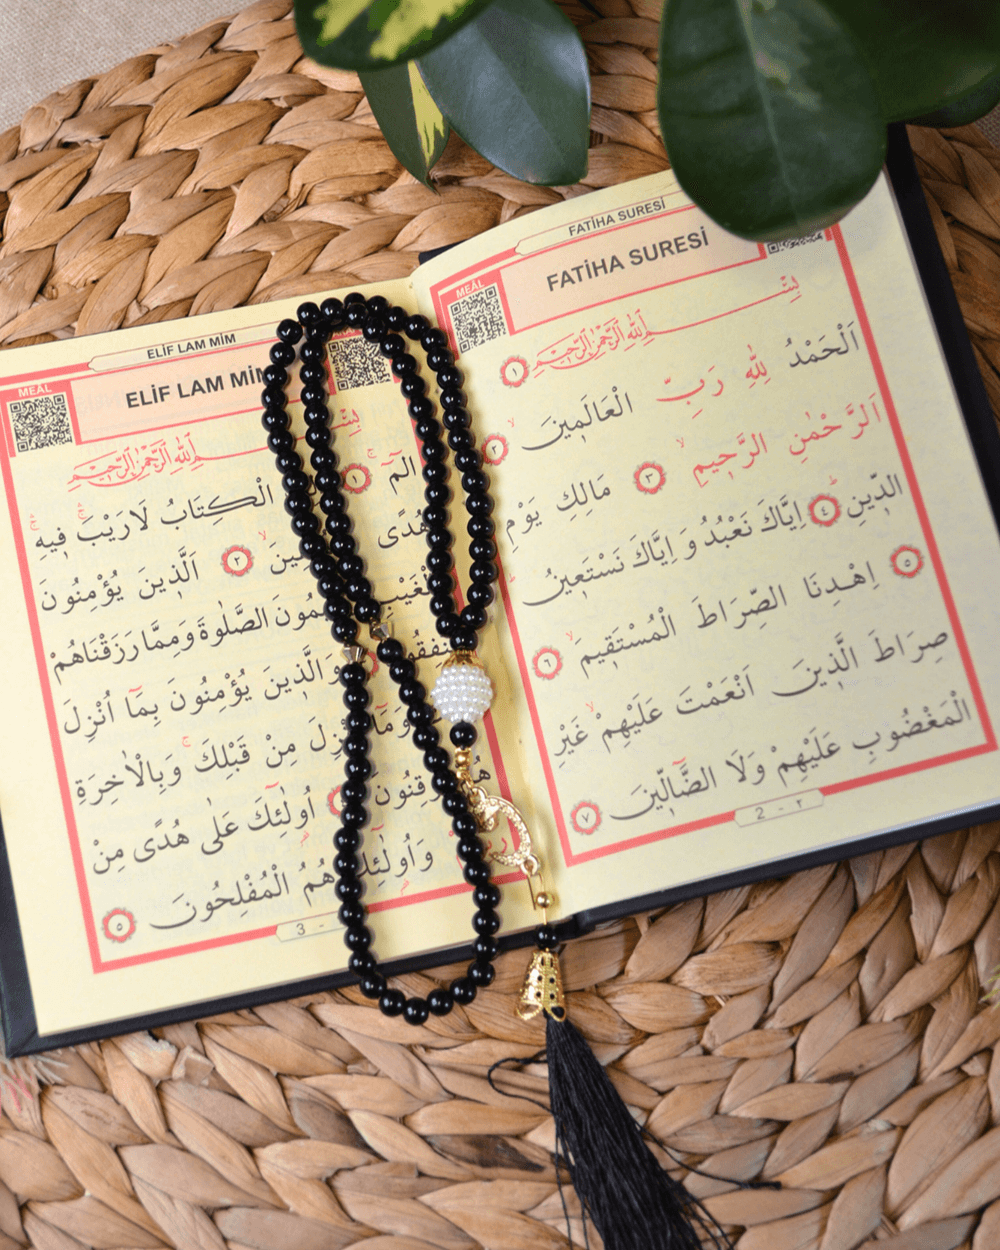 FATİHA SURESİ
MEÂL
FATİHA SURESİ
بِسْــــمِ اللّٰهِ الرَّحْمٰنِ الرَّحِيمِ ١
اَلْحَمْدُ لِلّٰهِ رَبِّ الْعَالَمِينَ ٢
اَلرَّحْمٰنِ الرَّحِيمِ ٣ مَالِكِ يَوْمِ
الدِّينِ ٤ اِيَّاكَ نَعْبُدُ وَ اِيَّاكَ نَسْتَعِينُ
٥ اِهْدِنَا الصِّرَاطَ الْمُسْتَقِيمَ ٦
صِرَاطَ الَّذِينَ اَنْعَمْتَ عَلَيْهِمْ غَيْرِ
الْمَغْضُوبِ عَلَيْهِمْ وَلَا الضَّٓالِّينَ ٧
2 - ٢
ELİF LAM MİM
MEÂL
ELİF LAM MİM
بِسْــــمِ اللّٰهِ الرَّحْمٰنِ الرَّحِيمِ
الٓمٓ ١ الْكِتَابُ لَا رَيْبَ فِيهِ
هُدًى ٢ اَلَّذِينَ يُؤْمِنُونَ
الصَّلٰوةَ وَمِمَّا رَزَقْنَاهُمْ
وَالَّذِينَ يُؤْمِنُونَ بِمَٓا اُنْزِلَ
مِنْ قَبْلِكَ وَبِالْاٰخِرَةِ
اُولٰٓئِكَ عَلٰى هُدًى مِنْ
وَاُولٰٓئِكَ هُمُ الْمُفْلِحُونَ ٥
3 -